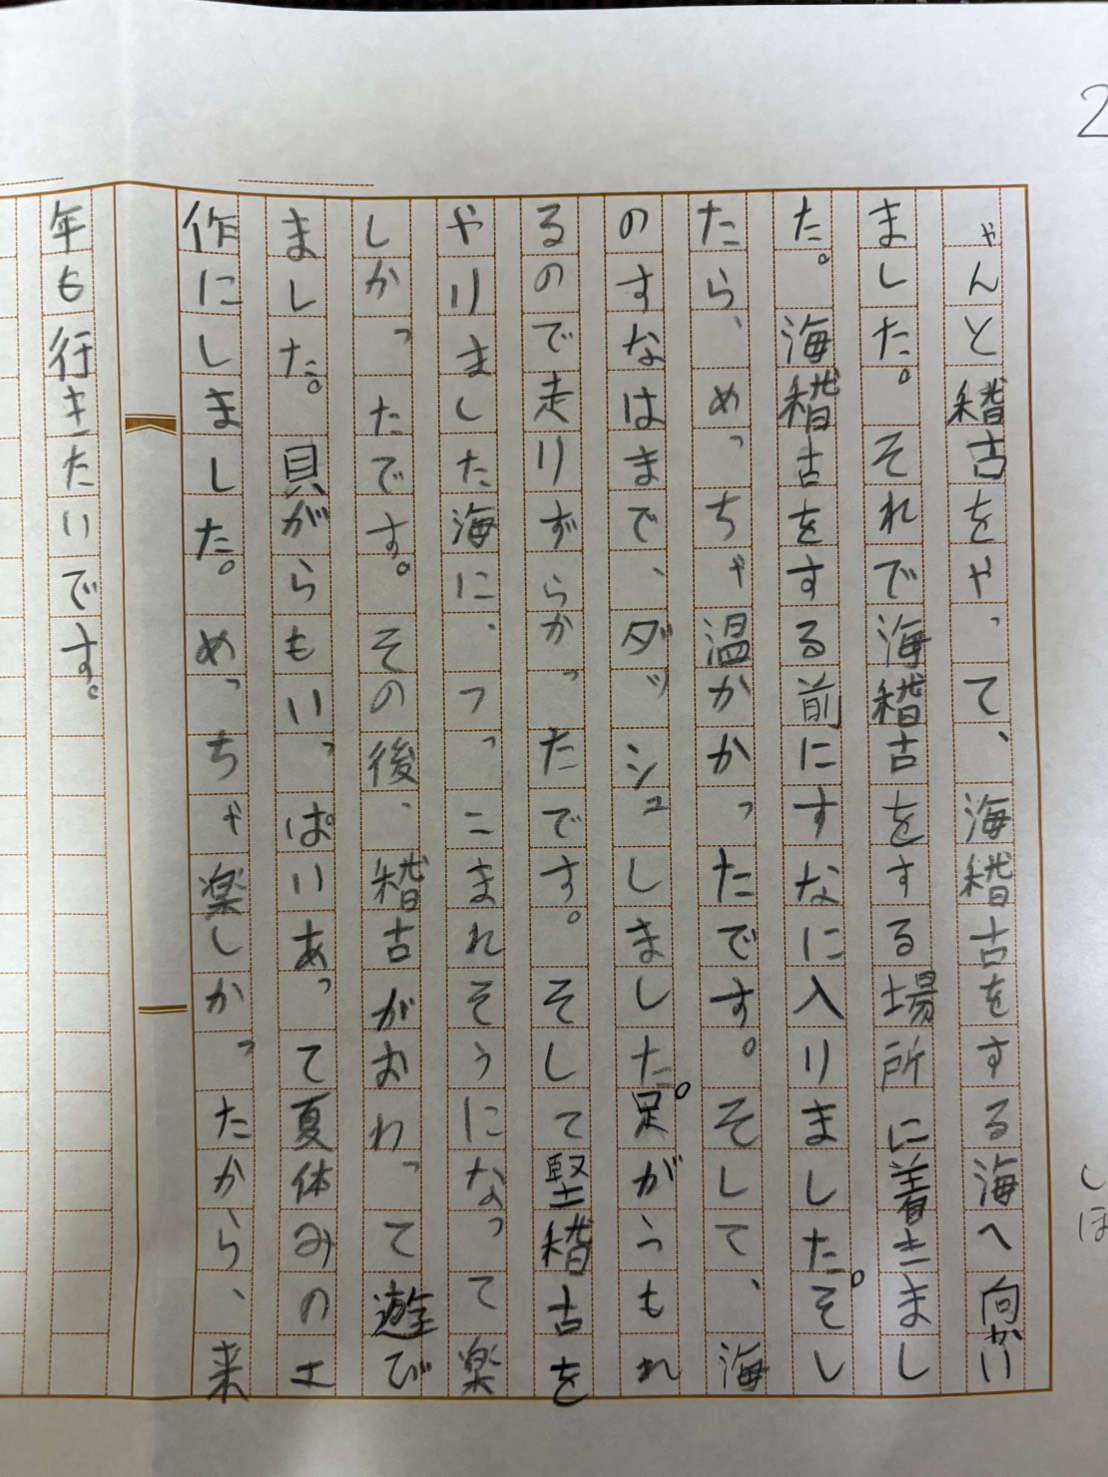 2
ゃんと稽古をやって、海稽古をする海へ向かい
ました。それで海稽古をする場所に着きまし
た。海稽古をする前にすなに入りました。そし
たら、めっちゃ温かかったです。そして、海
のすなはまで、ダッシュしました。足がうもれ
るのので走りずらかったです。そして堅稽古を
やりました海に、つっこまれそうになって楽
しかったです。その後、稽古がおわって遊び
ました。貝がらもいっぱいあって夏休みの工
作にしました。めっちゃ楽しかったから、来
年も行きたいです。